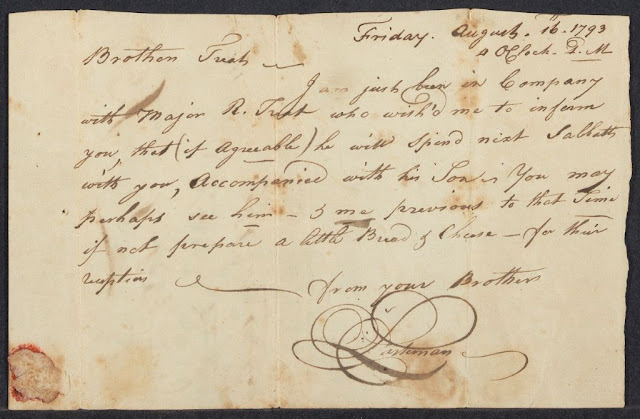 Friday. August. 16. 1793
4 OClock. P.M
Brother Treat
I am just been in Company
with Major R. Treat who wish'd me to inform
you, that (if Agreeable) he will Spend next Sabbath
with you, Accompanied with his Son; You may
perhaps see him – & me previous to that Time
if not prepare a little Bread & Cheese – for their
reception
from your Brother